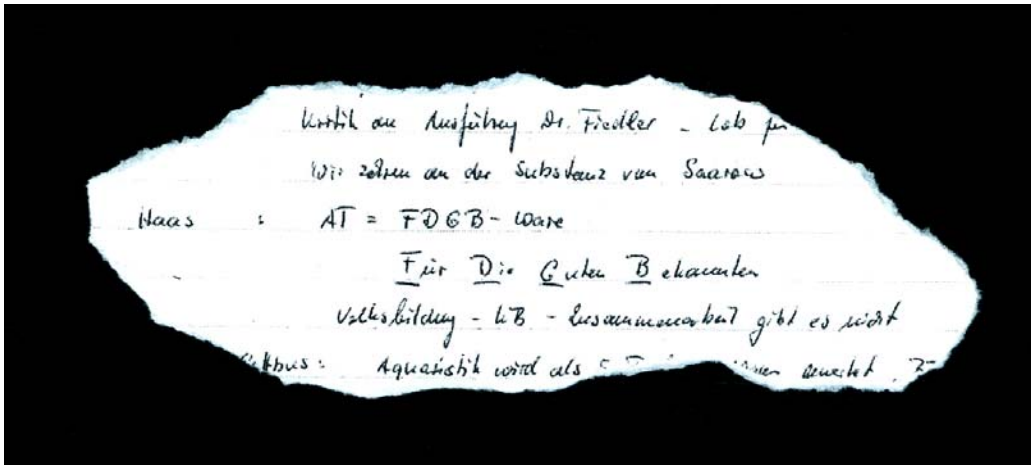 Kritik an Ausführung Dr. Fiedler - Lob
Wir zehren an der Substanz von Saarow
Haas : AT = FDGB - Ware
Für Die Guten Bekannten
Volksbildung - KB - Zusammenarbeit gibt es nicht
Aquaristik wird als